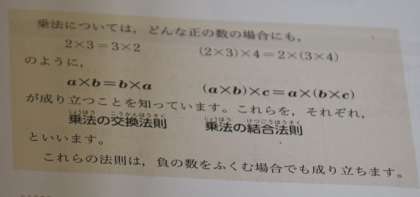 乗法については，どんな正の数の場合にも，
2×3＝3×2　　(2×3)×4＝2×(3×4)
のように，
a×b＝b×a　　(a×b)×c＝a×(b×c)
が成り立つことを知っています。これらを，それぞれ，
乗法の交換法則　　乗法の結合法則
といいます。
これらの法則は，負の数をふくむ場合でも成り立ちます。